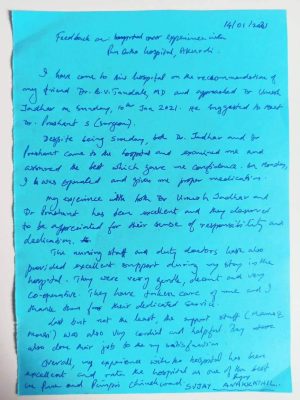 14/01/2021
Feedback on hospital over experience with
Pun Ortho hospital, Akurdi.
I have come to this hospital on the recommendation of
my friend Dr. B.V. Tandale, MD and approached Dr Umesh
Jadhav on Sunday, 10th Jan 2021. He suggested to meet
Dr. Prashant S (Surgeon).
Despite being Sunday, both Dr. Jadhav and Dr
Prashant came to the hospital and examined me and
assured the best which gave me confidence. On Monday,
I was operated and given me proper medication.
My experience with both Dr Umesh Jadhav and
Dr Prashant has been excellent and they deserved
to be appreciated for their sense of responsibility and
dedication.
The nursing staff and duty doctors have also
provided excellent support during my stay in the
hospital. They were very gentle, decent and very
co-operative. They have taken care of me and I
thank them for their dedicated service.
Last but not the least, the support staff (mama &
maushi) was also very cordial and helpful. They have
also done their job to my satisfaction
Overall, my experience with the hospital has been
excellent and rate the hospital as one of the best
in Pune and Pimpri Chinchwad SUJAY